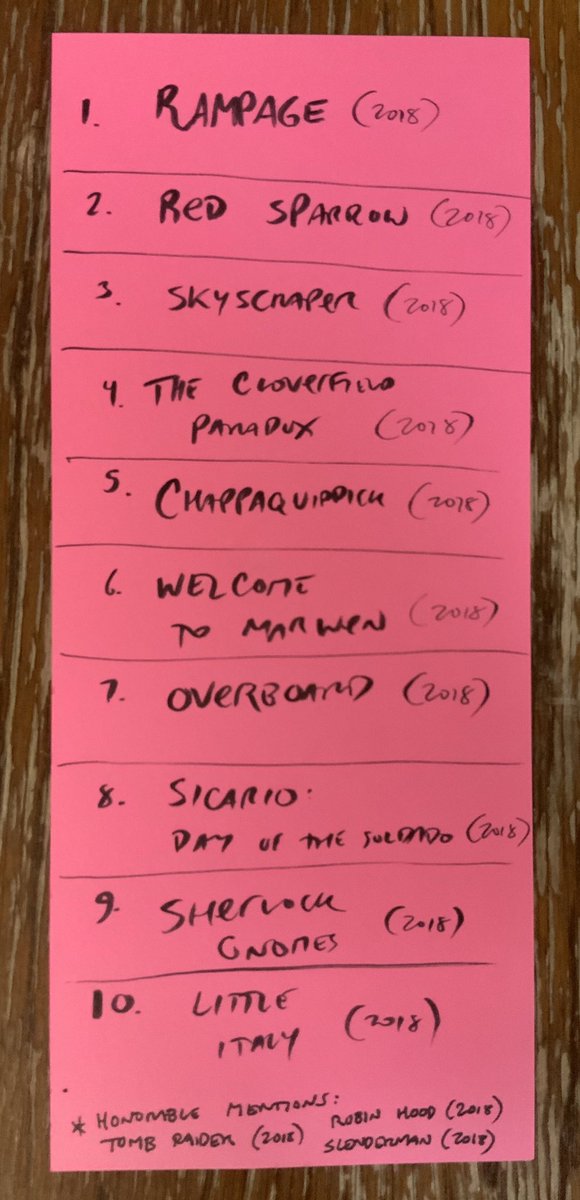 1. RAMPAGE (2018)
2. RED SPARROW (2018)
3. SKYSCRAPER (2018)
4. THE CLOVERFIELD
PARADOX (2018)
5. CHAPPAQUIDDICK (2018)
6. WELCOME
TO MARWEN (2018)
7. OVERBOARD (2018)
8. SICARIO:
DAY OF THE SOLDADO (2018)
9. SHERLOCK
GNOMES (2018)
10. LITTLE
ITALY (2018)
* HONORABLE MENTIONS: ROBIN HOOD (2018)
TOMB RAIDER (2018) SLENDERMAN (2018)